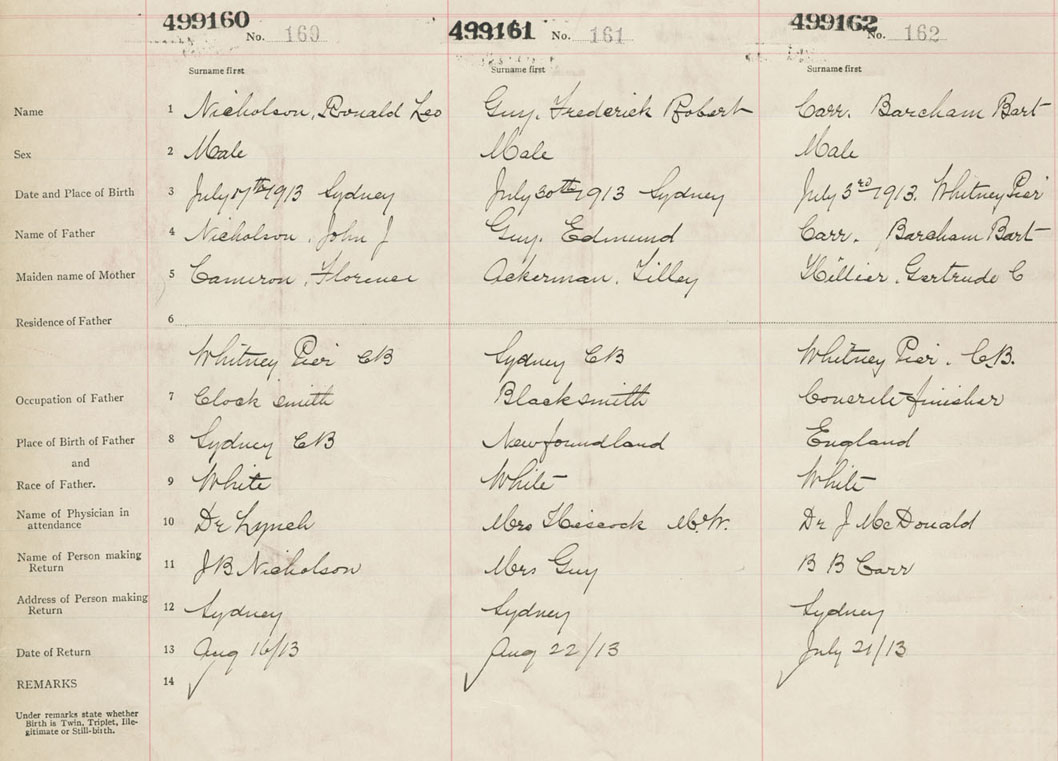 499160 No. 160 499161 No. 161 499162 No. 162
Surname first Surname first Surname first
Name 1 Nicholson, Ronald Leo Guy. Frederick Robert Carr. Barcham Bart
Sex 2 Male Male Male
Date and Place of Birth 3 July 17th 1913 Sydney July 30th 1913 Sydney July 3rd 1913. Whitney Pier
Name of Father 4 Nicholson, John J Guy. Edmund Carr. Barcham Bart
Maiden name of Mother 5 Cameron, Florence Ackerman. Lilley Hillier. Gertrude C
Residence of Father 6
Whitney Pier CB Sydney CB Whitney Pier. C.B.
Occupation of Father 7 Clock smith Blacksmith Concrete finisher
Place of Birth of Father 8 Sydney CB Newfoundland England
and
Race of Father. 9 White White White
Name of Physician in
attendance 10 Dr Lynch Mrs Hiscock M.W. Dr J McDonald
Name of Person making
Return 11 JB Nicholson Mrs Guy B B Carr
Address of Person making
Return 12 Sydney Sydney Sydney
Date of Return 13 Aug 16/13 Aug 22/13 July 21/13
REMARKS 14
Under remarks state whether
Birth is Twin, Triplet, Ille-
gitimate or Still-birth.